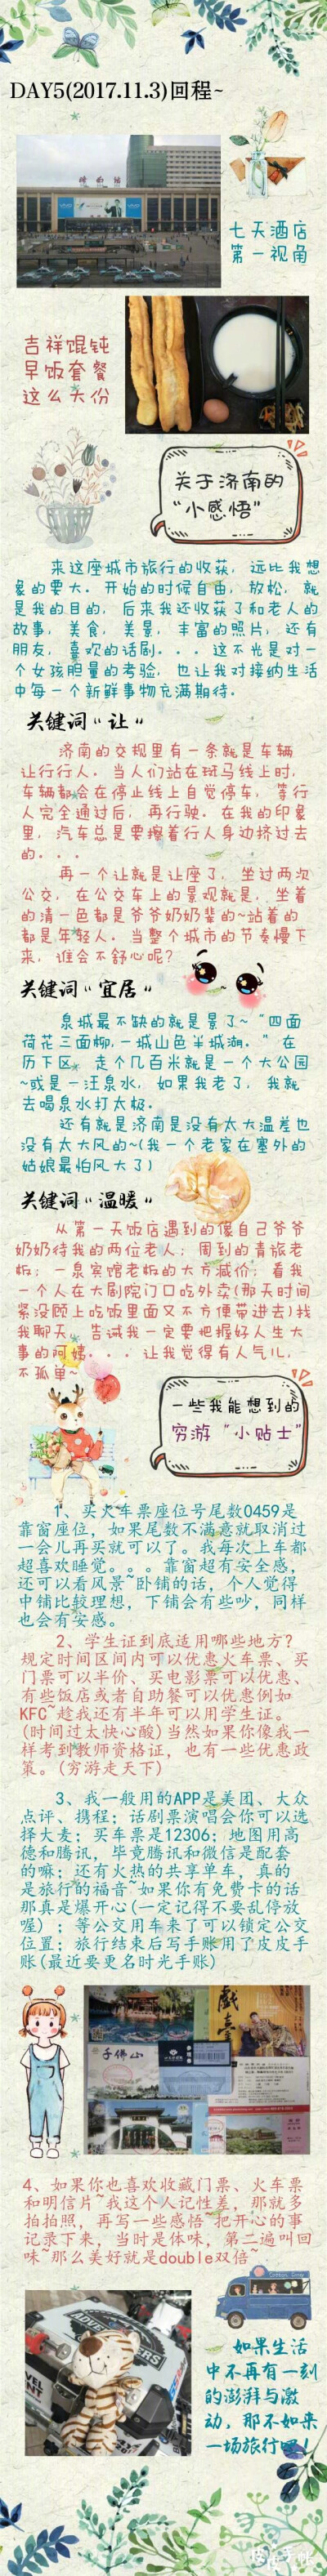 DAY5(2017.11.3)回程~
济南站
七天酒店
第一视角
吉祥馄饨
早饭套餐
这么大份
关于济南的
“小感悟”
来这座城市旅行的收获，远比我想
象的要大。开始的时候自由，放松，就
是我的目的，后来我还收获了和老人的
故事，美食，美景，丰富的照片，还有
朋友，喜欢的话剧。。。这不光是对一
个女孩胆量的考验，也让我对接纳生活
中每一个新鲜事物充满期待。
关键词“让”
济南的交规里有一条就是车辆
让行行人。当人们站在斑马线上时，
车辆都会在停止线上自觉停车，等行
人完全通过后，再行驶。在我的印象
里，汽车总是要擦着行人身边挤过去
的。。。
再一个让就是让座了，坐过两次
公交，在公交车上的景观就是，坐着
的清一色都是爷爷奶奶辈的~站着的
都是年轻人。当整个城市的节奏慢下
来，谁会不舒心呢？
关键词“宜居”
泉城最不缺的就是景了~“四面
荷花三面柳,一城山色半城湖。”在
历下区，走个几百米就是一个大公园
~或是一汪泉水，如果我老了，我就
去喝泉水打太极。
还有就是济南是没有太大温差也
没有太大风的~(我一个老家在塞外的
姑娘最怕风大了)
关键词“温暖”
从第一天饭店遇到的像自己爷爷
奶奶待我的两位老人；周到的青旅老
板；一泉宾馆老板的大方减价；看我
一个人在大剧院门口吃外卖(那天时间
紧没顾上吃饭里面又不方便带进去)找
我聊天，告诫我一定要把握好人生大
事的阿姨。。。让我觉得有人气儿，
不孤单~
一些我能想到的
穷游“小贴士”
1、买火车票座位号尾数0459是
靠窗座位，如果尾数不满意就取消过
一会儿再买就可以了。我每次上车都
超喜欢睡觉。。。靠窗超有安全感，
还可以看风景~卧铺的话，个人觉得
中铺比较理想，下铺会有些吵，同样
也会有安感。
2、学生证到底适用哪些地方？
规定时间区间内可以优惠火车票、买
门票可以半价、买电影票可以优惠、
有些饭店或者自助餐可以优惠例如
KFC~趁我还有半年可以用学生证。
(时间过太快心酸)当然如果你像我一
样考到教师资格证，也有一些优惠政
策。(穷游走天下)
3、我一般用的APP是美团、大众
点评、携程；话剧票演唱会你可以选
择大麦；买车票是12306；地图用高
德和腾讯，毕竟腾讯和微信是配套
的嘛；还有火热的共享单车，真的
是旅行的福音~如果你有免费卡的话
那真是爆开心(一定记得不要乱停放
喔)；等公交用车来了可以锁定公交
位置；旅行结束后写手账用了皮皮手
账(最近要更名时光手账)
千佛山
戲臺
4、如果你也喜欢收藏门票、火车票
和明信片~我这个人记性差，那就多
拍拍照，再写一些感悟~把开心的事
记录下来，当时是体味，第二遍叫回
味~那么美好就是double双倍~
如果生活
中不再有一刻
的澎湃与激
动，那不如来
一场旅行吧
皮皮手帐